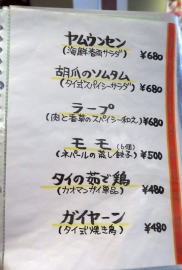 ヤムウンセン
(海鮮春雨サラダ) ¥680
胡瓜のソムタム
(タイ式スパイシーサラダ) ¥680
ラープ
(肉と香菜のスパイシー和え) ¥680
モモ (6個)
(ネパールの蒸し餃子) ¥500
タイの茹で鶏
(カオマンガイ単品) ¥480
ガイヤーン
(タイ式焼き鳥) ¥480